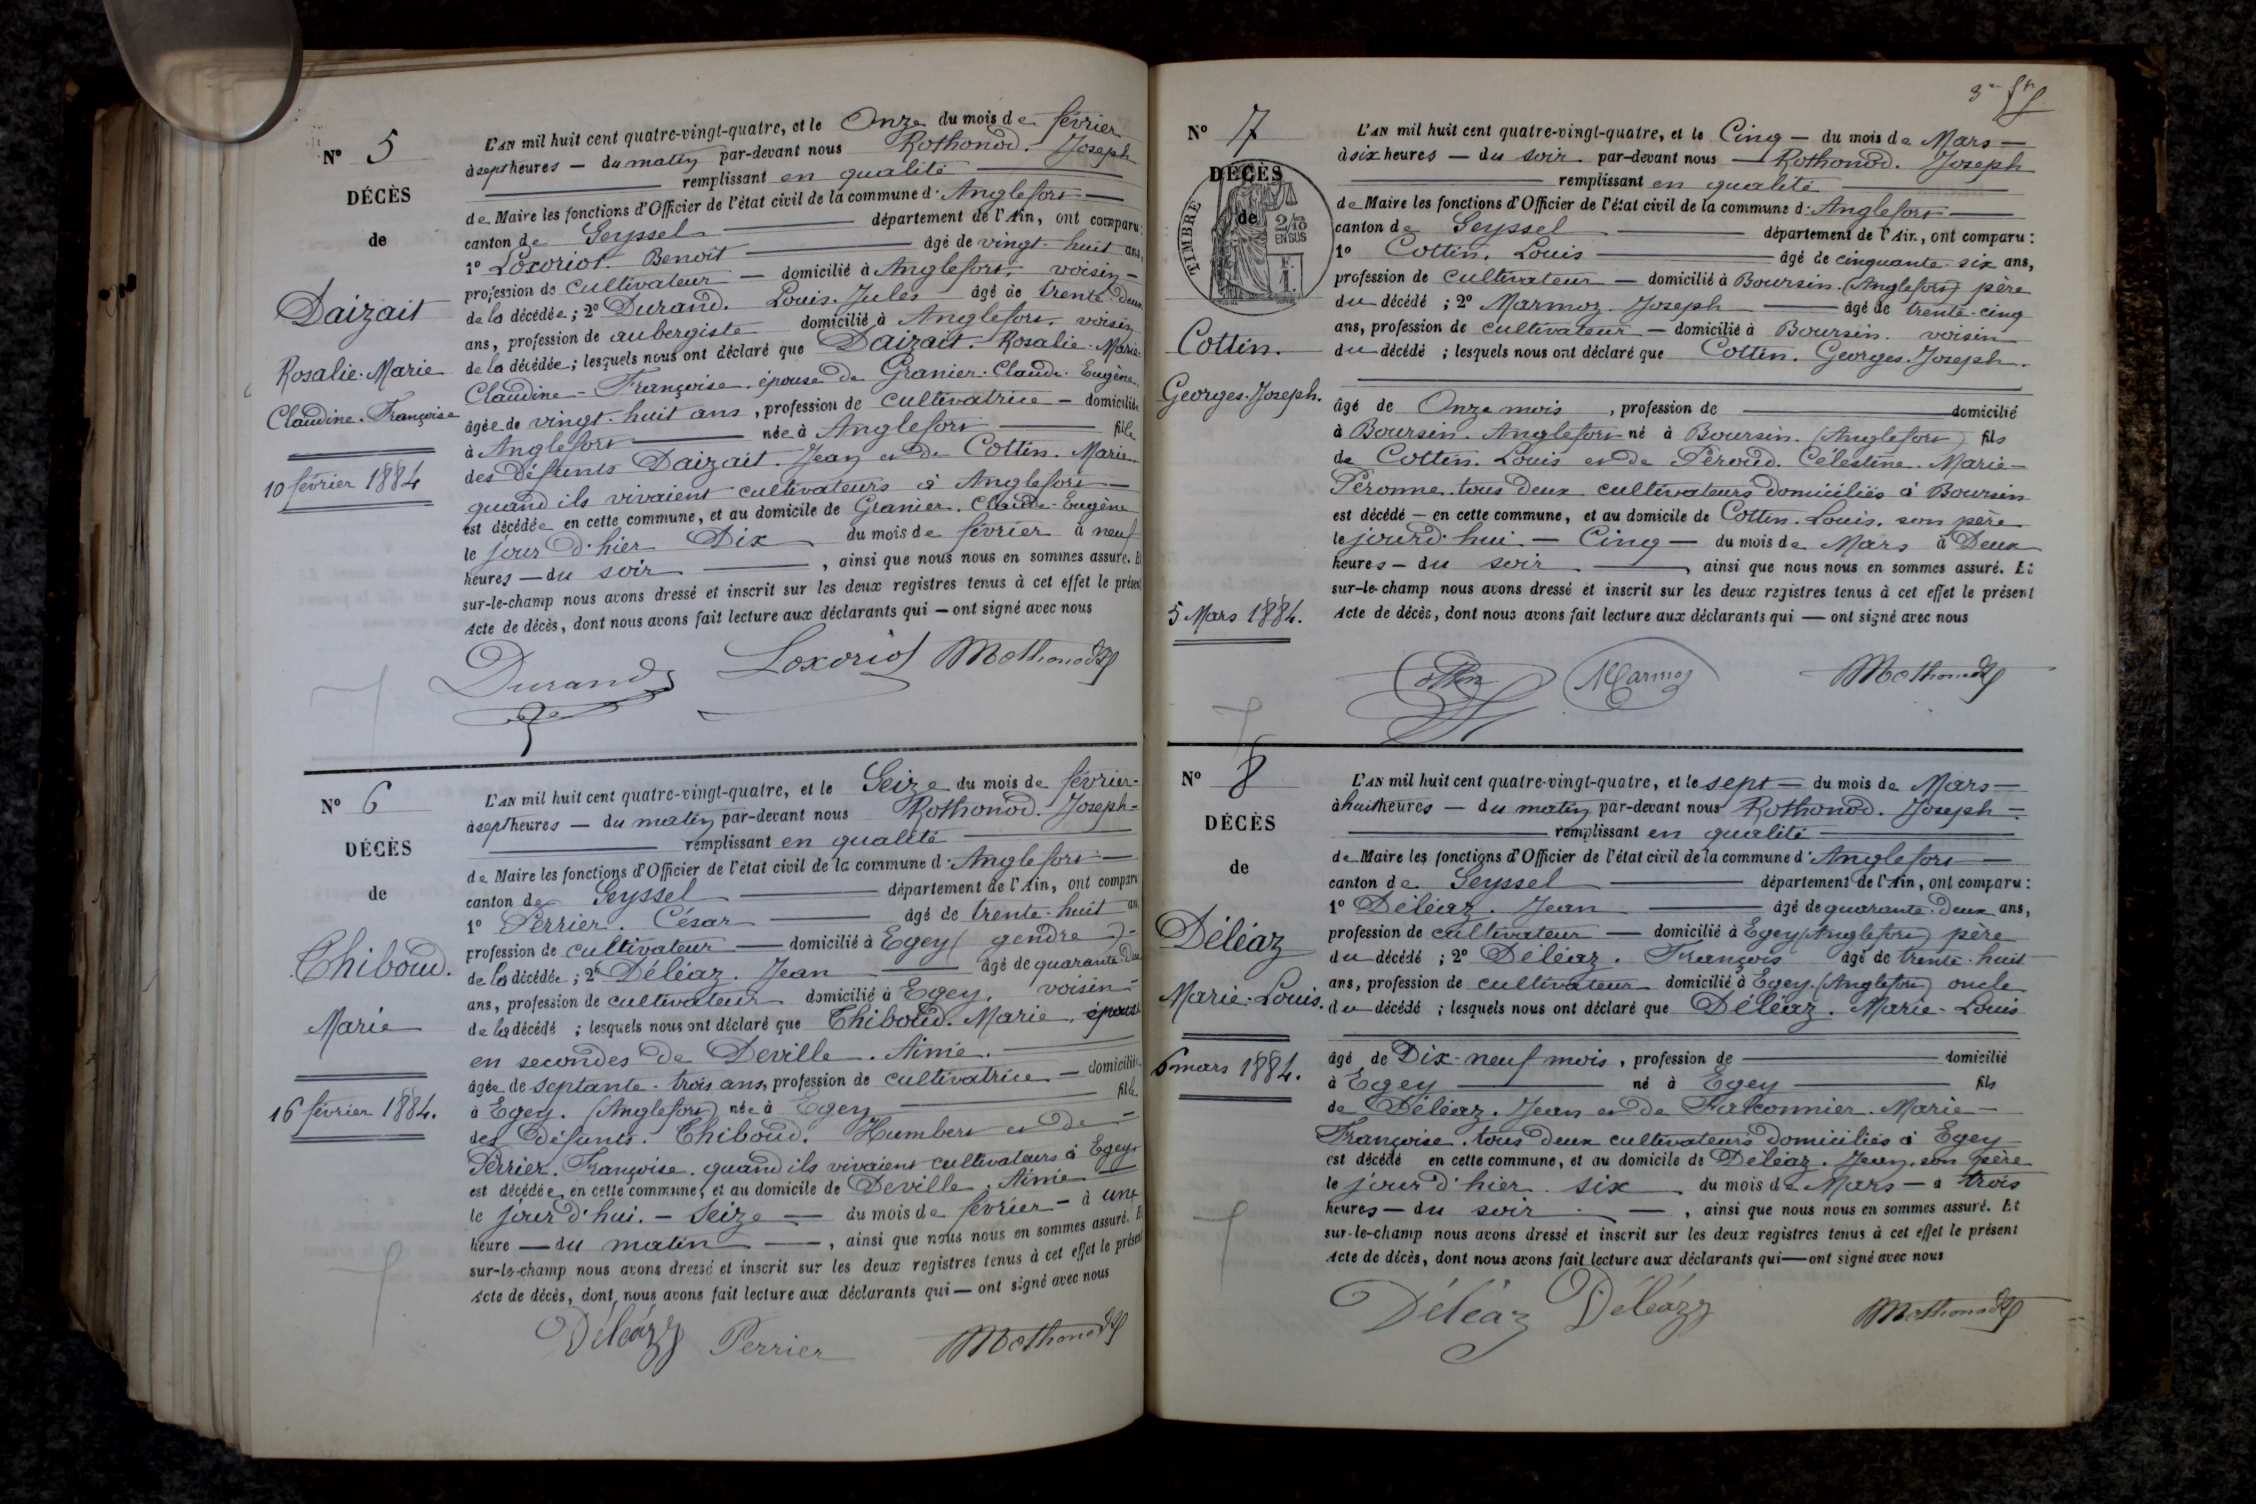 N° 5
DÉCÈS
de
Daizait
Rosalie-Marie
Claudine-Françoise
10 février 1884
L'AN mil huit cent quatre-vingt-quatre, et le Onze du mois de février
à sept heures — du matin par-devant nous Rothonod. Joseph
remplissant en qualité
de Maire les fonctions d'Officier de l'état civil de la commune d'Anglefort
canton de Seyssel département de l'Ain, ont comparu:
1° Loxoriot. Benoît âgé de vingt-huit ans,
profession de cultivateur — domicilié à Anglefort, voisin
de la décédée; 2° Durand. Louis-Jules âgé de trente-deux
ans, profession de aubergiste domicilié à Anglefort. voisin
de la décédée; lesquels nous ont déclaré que Daizait. Rosalie-Marie
Claudine-Françoise. épouse de Granier. Claude-Eugène.
âgée de vingt-huit ans, profession de cultivatrice — domiciliée
à Anglefort née à Anglefort fille
des défunts Daizait. Jean et de Cottin. Marie
quand ils vivaient cultivateurs à Anglefort
est décédée en cette commune, et au domicile de Granier. Claude-Eugène
le jour d'hier Dix du mois de février à neuf
heures — du soir, ainsi que nous nous en sommes assuré. Et
sur-le-champ nous avons dressé et inscrit sur les deux registres tenus à cet effet le présent
Acte de décès, dont nous avons fait lecture aux déclarants qui — ont signé avec nous
Durand Loxoriot Rothonod
N° 6
DÉCÈS
de
Thiboud.
Marie
16 février 1884.
L'AN mil huit cent quatre-vingt-quatre, et le Seize du mois de février
à sept heures — du matin par-devant nous Rothonod. Joseph
remplissant en qualité
de Maire les fonctions d'Officier de l'état civil de la commune d'Anglefort
canton de Seyssel département de l'Ain, ont comparu
1° Perrier. César âgé de trente-huit ans
profession de cultivateur — domicilié à Egey (gendre)
de la décédée; 2° Déléaz. Jean âgé de quarante-deux
ans, profession de cultivateur domicilié à Egey, voisin
de la décédé; lesquels nous ont déclaré que Thiboud. Marie, épouse
en secondes de Deville. Aimé.
âgée de septante-trois ans, profession de cultivatrice — domiciliée
à Egey. (Anglefort) née à Egey fille
des défunts. Thiboud. Humbert et de
Perrier. Françoise. quand ils vivaient cultivateurs à Egey
est décédée en cette commune, et au domicile de Deville. Aimé
le jour d'hui. — Seize — du mois de février — à une
heure — du matin —, ainsi que nous nous en sommes assuré. Et
sur-le-champ nous avons dressé et inscrit sur les deux registres tenus à cet effet le présent
Acte de décès, dont nous avons fait lecture aux déclarants qui — ont signé avec nous
Déléaz Perrier Rothonod
N° 7
DÉCÈS
de
TIMBRE
2/10
EN SUS
Cottin.
Georges-Joseph.
5 Mars 1884.
L'AN mil huit cent quatre-vingt-quatre, et le Cinq — du mois de Mars —
à six heures — du soir par-devant nous — Rothonod. Joseph
remplissant en qualité
de Maire les fonctions d'Officier de l'état civil de la commune d'Anglefort
canton de Seyssel département de l'Ain, ont comparu:
1° Cottin. Louis âgé de cinquante-six ans,
profession de cultivateur — domicilié à Boursin. (Anglefort) père
du décédé; 2° Marmoz. Joseph âgé de trente-cinq
ans, profession de cultivateur — domicilié à Boursin. voisin
du décédé; lesquels nous ont déclaré que Cottin. Georges-Joseph.
âgé de Onze mois, profession de domicilié
à Boursin. Anglefort né à Boursin. (Anglefort) fils
de Cottin. Louis et de Péroud. Célestine-Marie-
Péronne. tous deux cultivateurs domiciliés à Boursin
est décédé — en cette commune, et au domicile de Cottin. Louis, son père
le jourd'hui — Cinq — du mois de Mars à Deux
heures — du soir, ainsi que nous nous en sommes assuré. Et
sur-le-champ nous avons dressé et inscrit sur les deux registres tenus à cet effet le présent
Acte de décès, dont nous avons fait lecture aux déclarants qui — ont signé avec nous
Cottin Marmoz Rothonod
N° 8
DÉCÈS
de
Déléaz
Marie-Louis.
6 mars 1884.
L'AN mil huit cent quatre-vingt-quatre, et le sept — du mois de Mars —
à huit heures — du matin par-devant nous Rothonod. Joseph
remplissant en qualité
de Maire les fonctions d'Officier de l'état civil de la commune d'Anglefort
canton de Seyssel département de l'Ain, ont comparu:
1° Déléaz. Jean âgé de quarante-deux ans,
profession de cultivateur — domicilié à Egey (Anglefort) père
du décédé; 2° Déléaz. François âgé de trente-huit
ans, profession de cultivateur domicilié à Egey. (Anglefort) oncle
du décédé; lesquels nous ont déclaré que Déléaz. Marie-Louis
âgé de Dix-neuf mois, profession de domicilié
à Egey né à Egey fils
de Déléaz. Jean et de Falconnier. Marie-
Françoise. tous deux cultivateurs domiciliés à Egey
est décédé en cette commune, et au domicile de Déléaz. Jean, son père
le jour d'hier. six du mois de Mars — à trois
heures — du soir —, ainsi que nous nous en sommes assuré. Et
sur-le-champ nous avons dressé et inscrit sur les deux registres tenus à cet effet le présent
Acte de décès, dont nous avons fait lecture aux déclarants qui — ont signé avec nous
Déléaz Déléaz Rothonod